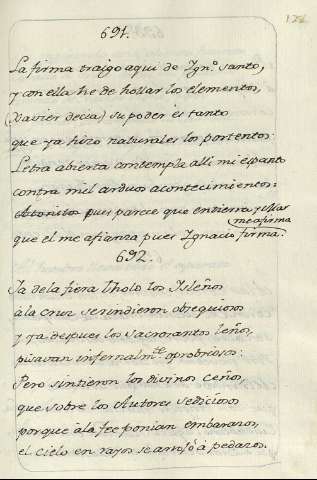 691.
La firma traigo aqui de Ygn.º santo,
y con ella he de hollar los elementos,
(Xavier decia) su poder es tanto
que ya hizo naturales los portentos:
Letra abierta contempla alli mi espanto
contra mil arduos acontecimientos:
pues parece que en tierra y Mar
me afirma
que el me afianza pues Ygnacio firma.
692.
Ya de la fiera Tholo los Isleños
à la cruz se rindieron obsequiosos
y ya despues los sacrosantos leños,
pisavan infernalm.te oprobriosos:
Pero sintieron los divinos ceños,
que sobre los Autores sediciosos
porque à la fee ponian embarazos,
el cielo en rayos se arrojò à pedazos.